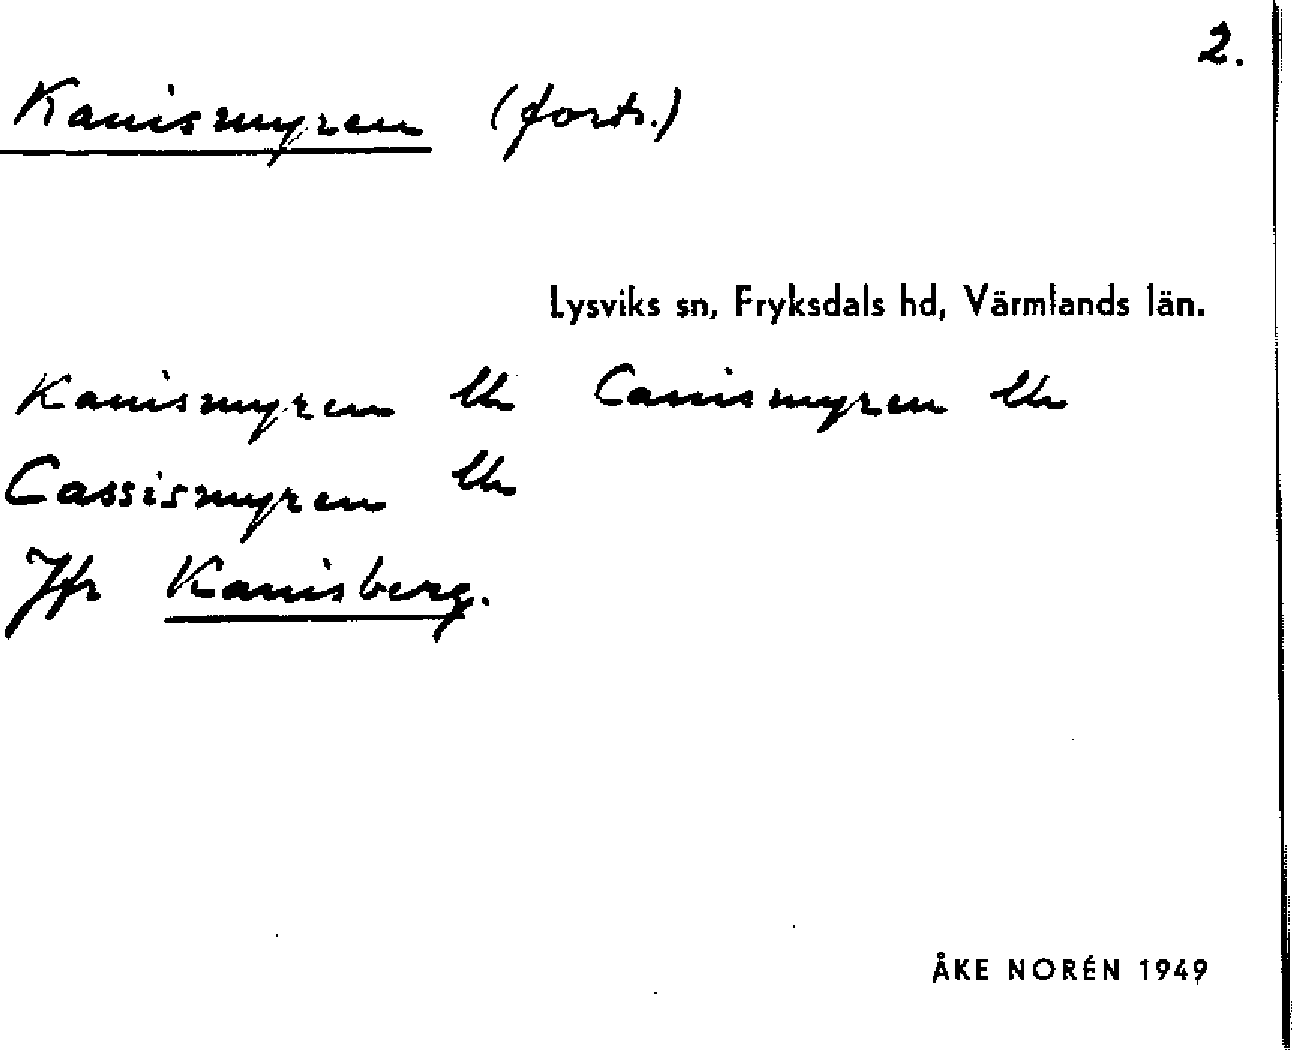 2.
Kanismyren (forts.)
Lysviks sn, Fryksdals hd, Värmlands län.
Kanismyren Uk Canismyren Uk
Cassismyren Uk
Jfr Kanisberg.
ÅKE NORÉN 1949